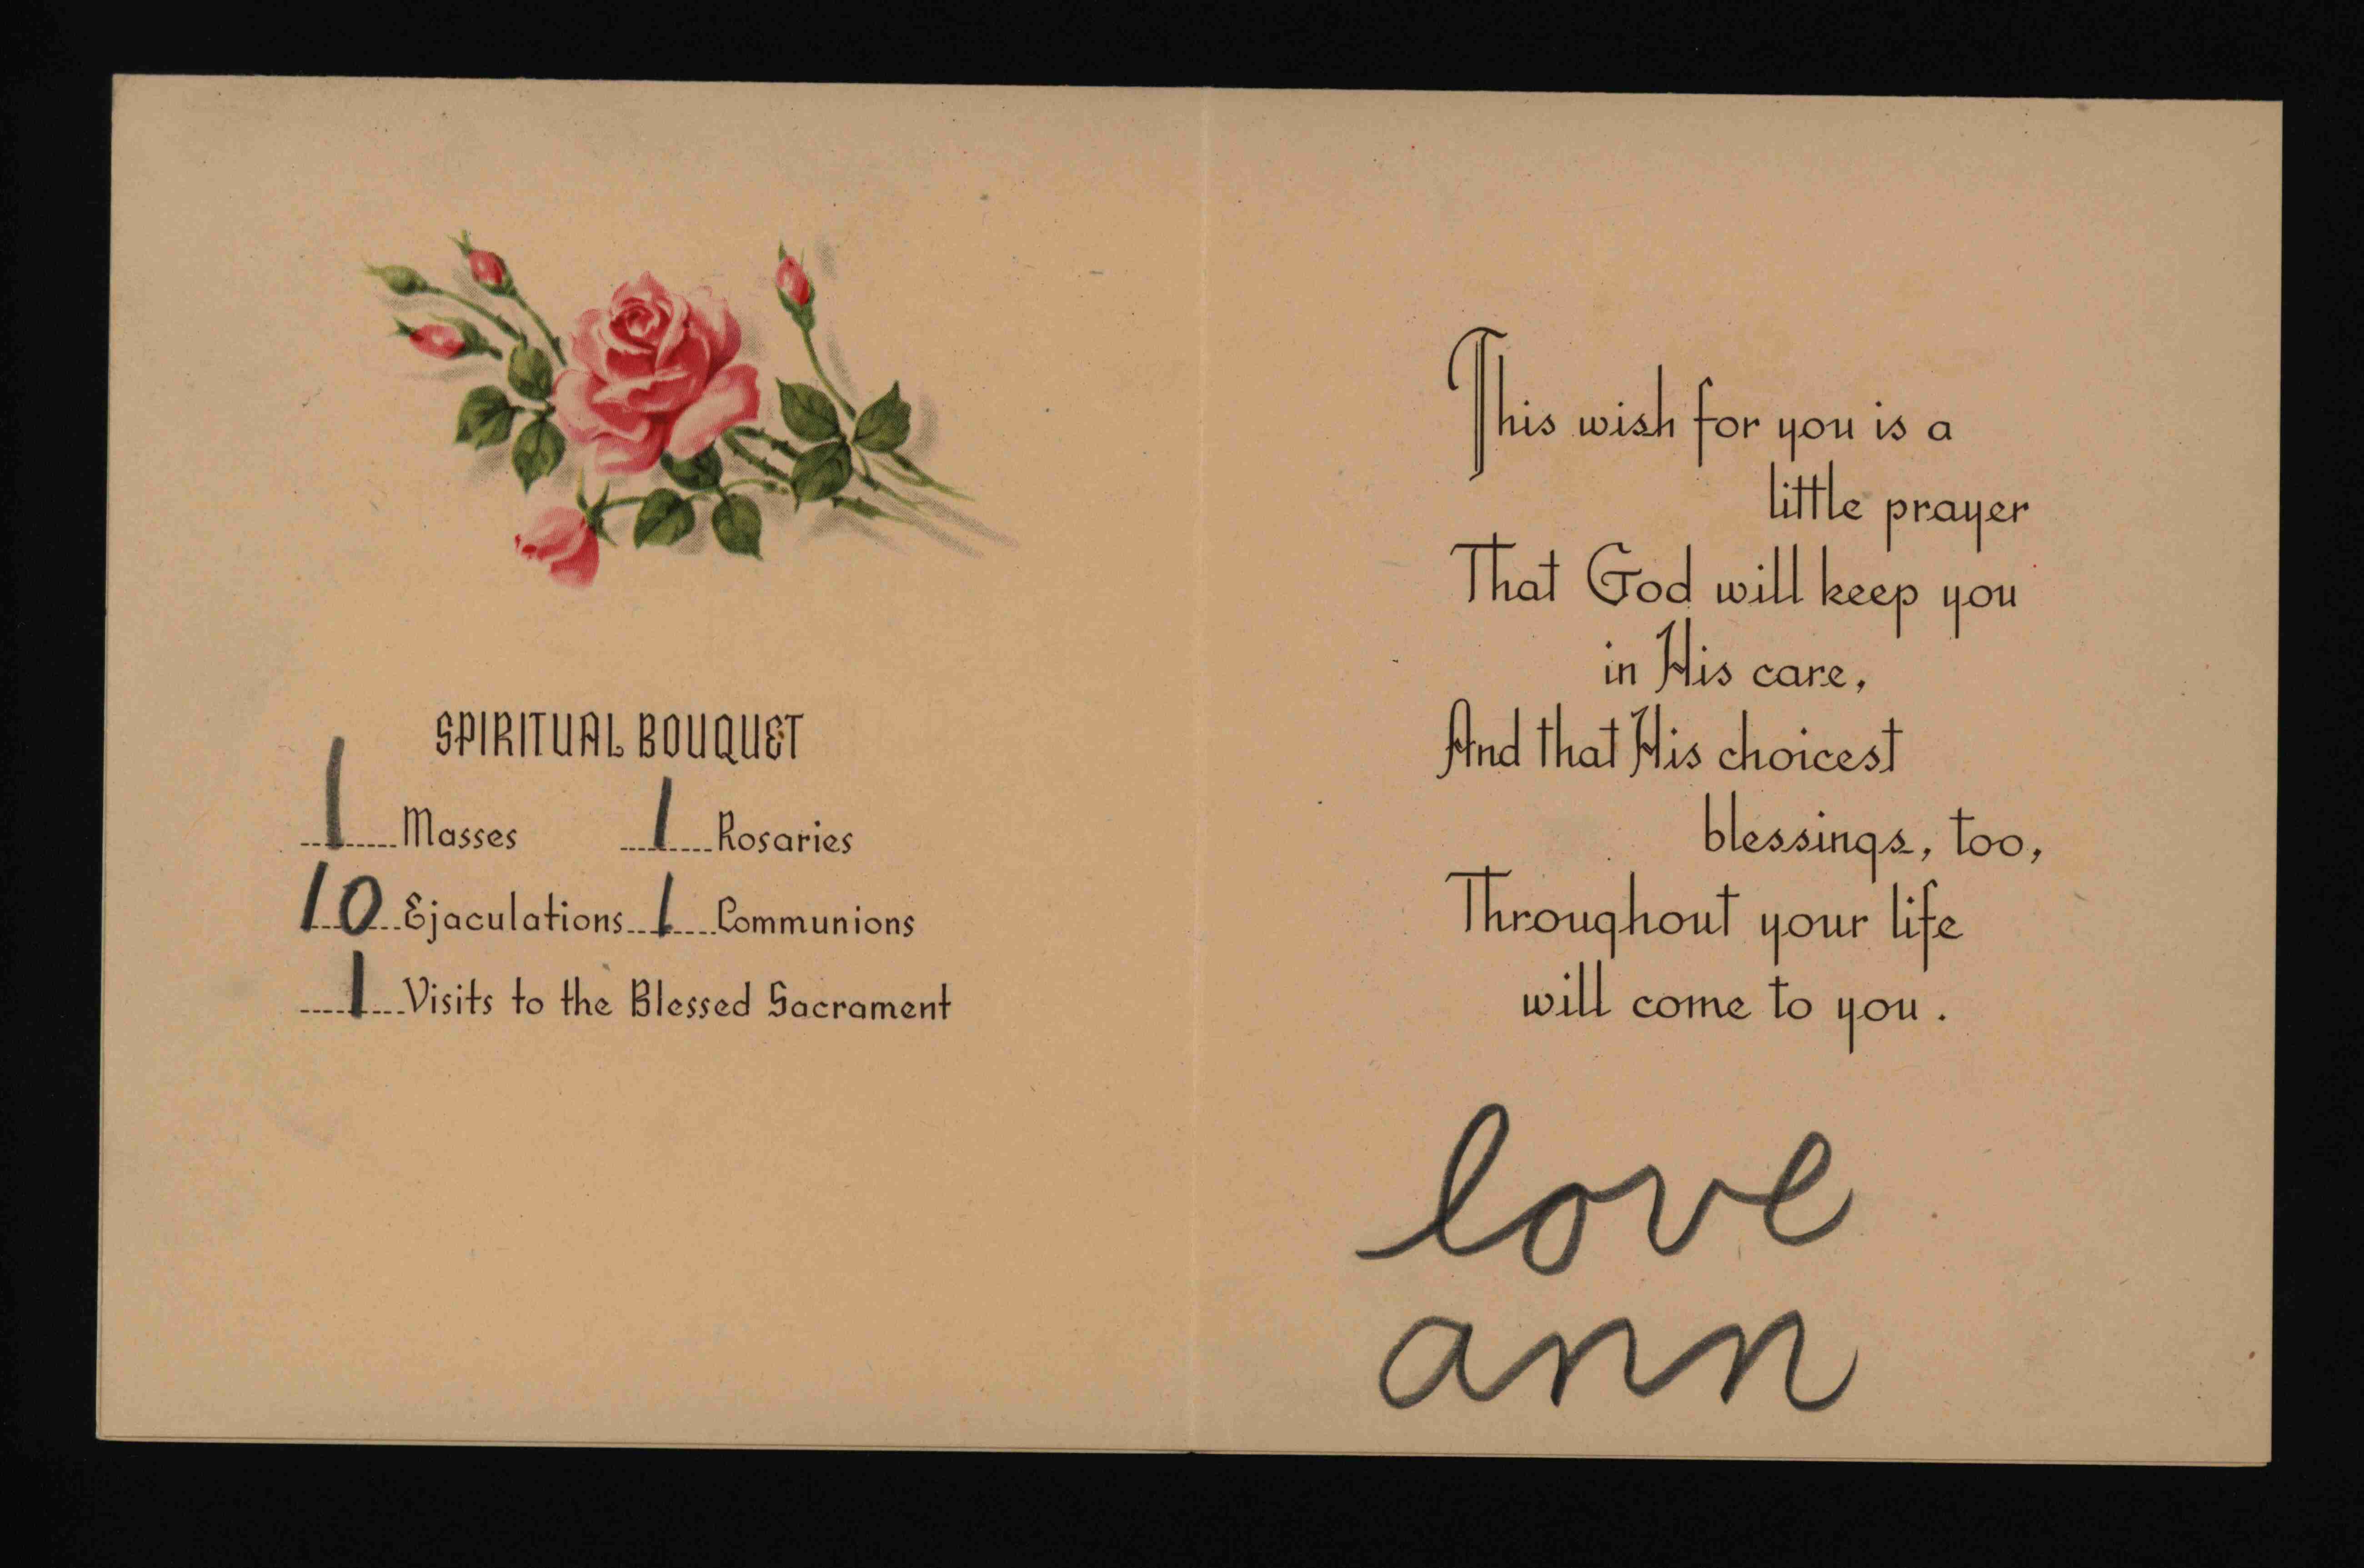 SPIRITUAL BOUQUET
1 Masses 1 Rosaries
10 Ejaculations 1 Communions
1 Visits to the Blessed Sacrament
This wish for you is a
little prayer
That God will keep you
in His care,
And that His choicest
blessings, too,
Throughout your life
will come to you.
love
ann